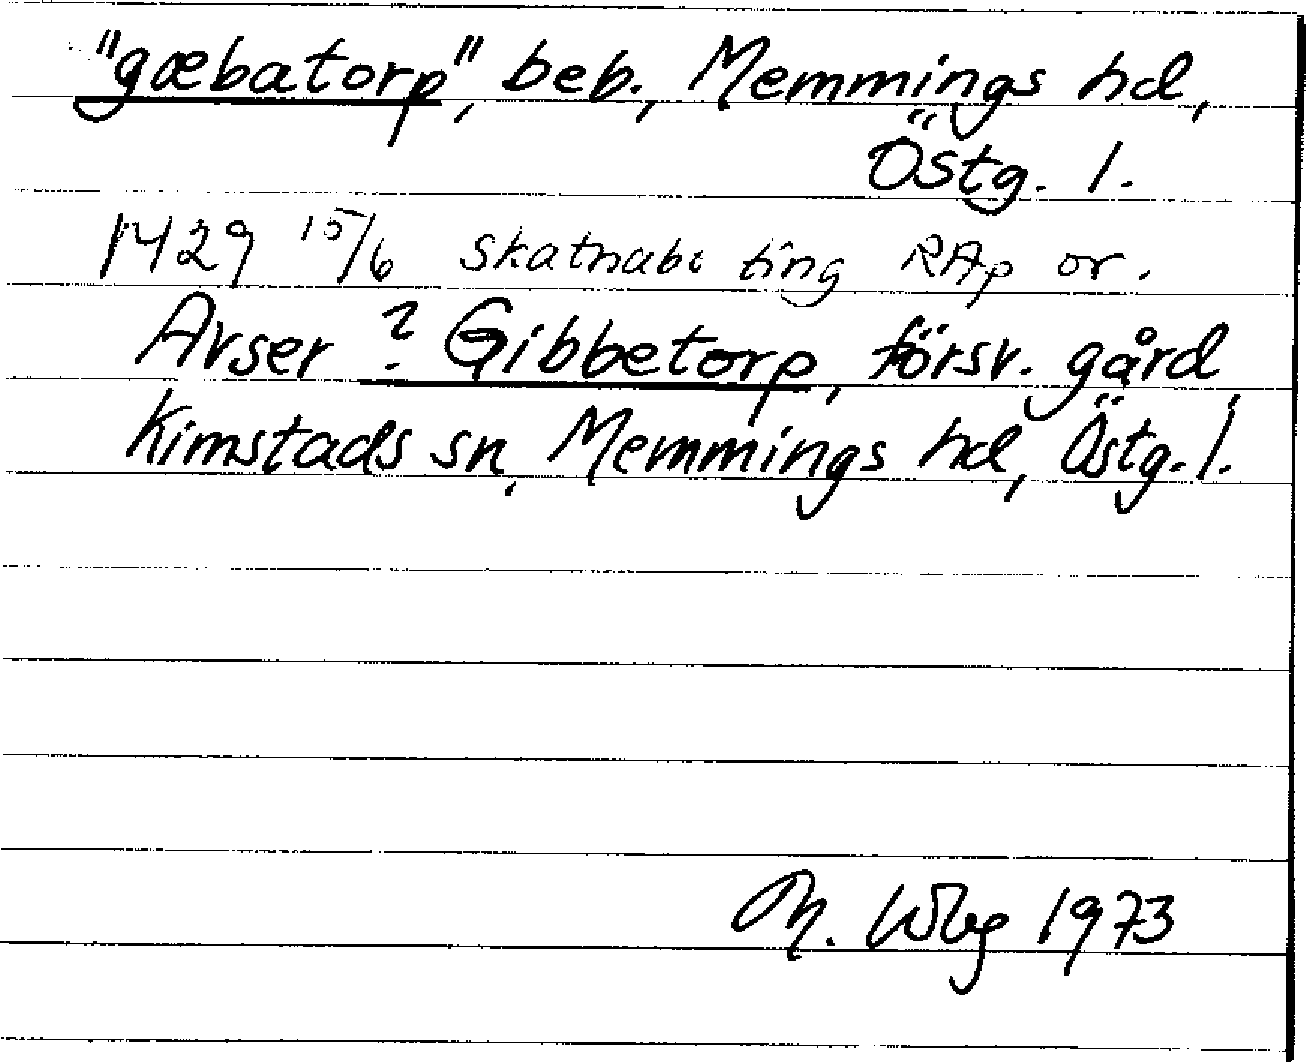 "gæbatorp", beb., Memmings hd,
Östg. l.
1429 15/6 Skatnabi ting RAp or.
Avser ? Gibbetorp, försv. gård,
Kimstads sn, Memmings hd, Östg. l.
M. Wbg 1973